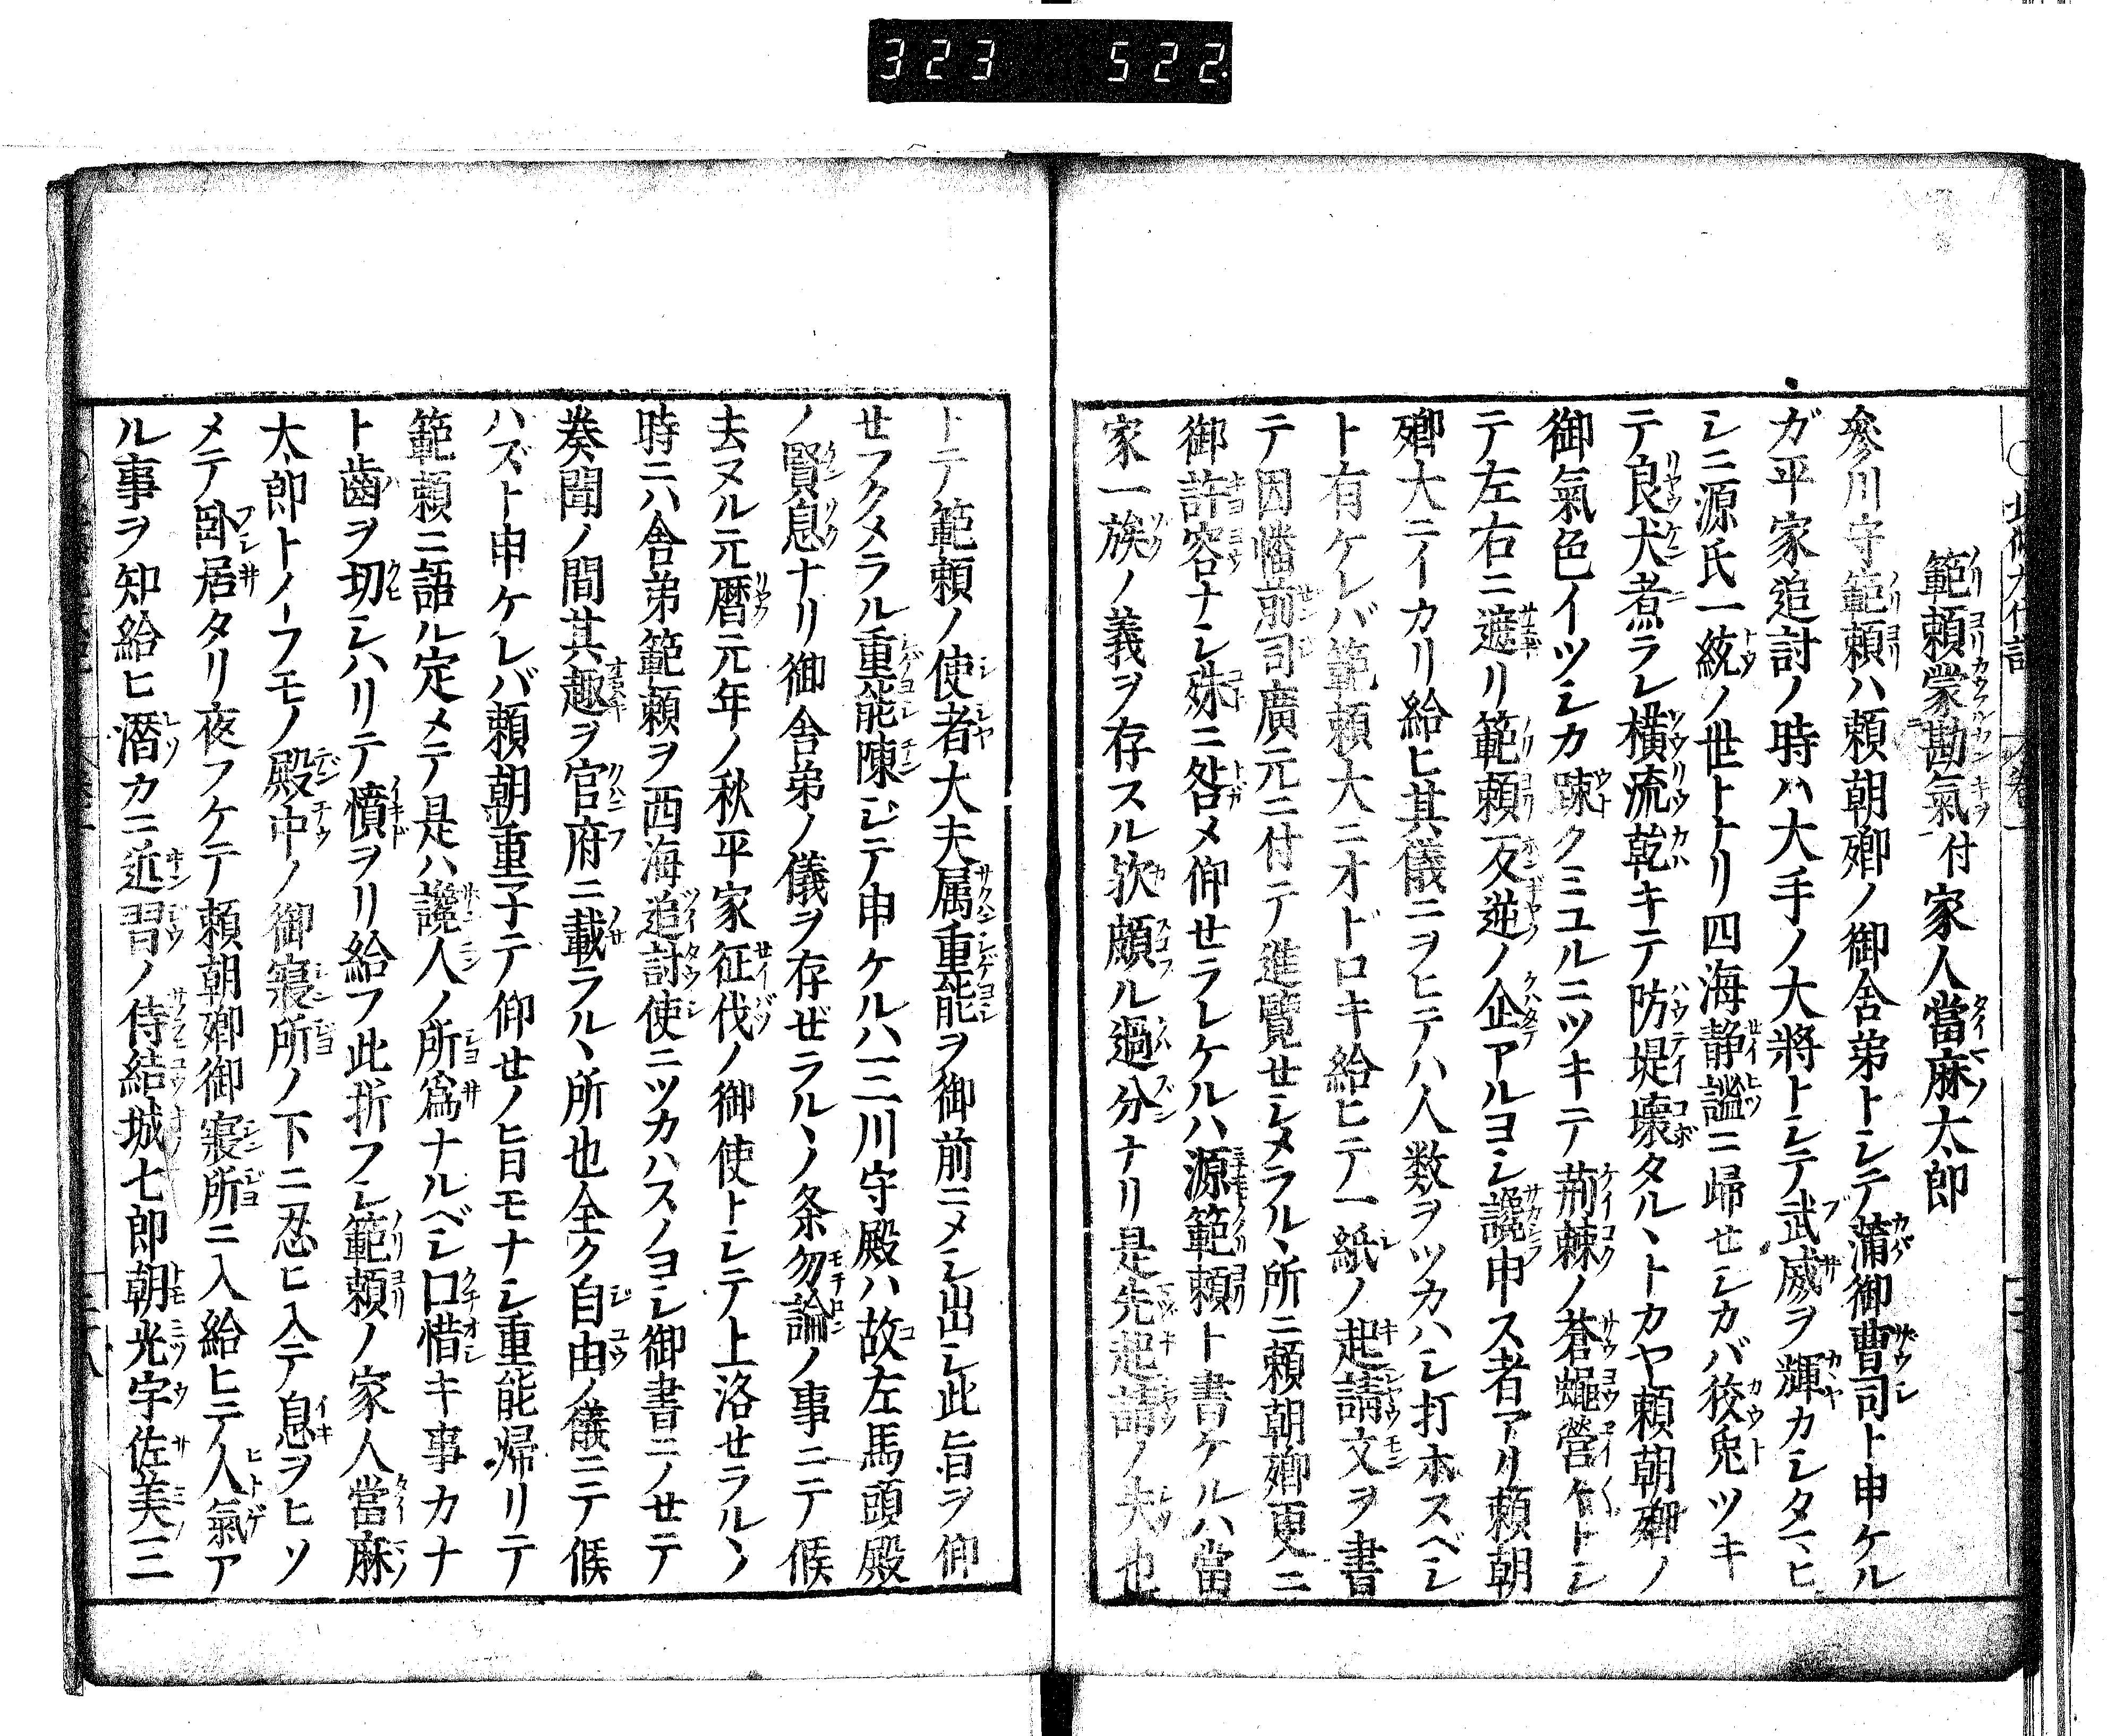 323 522
範頼蒙勘氣付家人當麻太郎
參川守範頼ハ頼朝卿ノ御舎弟トシテ蒲御曹司ト申ケル
ガ平家追討ノ時ハ大手ノ大將トシテ武威ヲ輝カシタマヒ
シニ源氏一統ノ世トナリ四海静謐ニ歸セシカバ狡兎ツキ
テ良犬煮ラレ横流乾キテ防堤壊タルヽトカヤ頼朝卿ノ
御氣色イツシカ踈クミユルニツキテ荊棘ノ蒼蠅營々トシ
テ左右ニ遮リ範頼反逆ノ企アルヨシ讒申ス者アリ頼朝
卿大ニイカリ給ヒ其儀ニヲヒテハ人数ヲツカハシ打亦スベシ
ト有ケレバ範頼大ニオドロキ給ヒテ一紙ノ起請文ヲ書
テ因幡前司廣元ニ付テ進覽せシメラルヽ所ニ頼朝卿更ニ
御許容ナシ殊ニ咎メ仰せラレケルハ源範頼ト書ケルハ當
家一族ノ義ヲ存スル欤頗ル過分ナリ是先起請ノ失也
トテ範頼ノ使者大夫属重能ヲ御前ニメシ出シ此旨ヲ仰
せフクメラル重能陳ジテ申ケルハ三川守殿ハ故左馬頭殿
ノ賢息ナリ御舎弟ノ儀ヲ存ぜラルヽノ条勿論ノ事ニテ候
去ヌル元暦元年ノ秋平家征伐ノ御使トシテ上洛せラルヽノ
時ニハ舎弟範頼ヲ西海追討使ニツカハスノヨシ御書ニノせテ
奏聞ノ間其趣ヲ官府ニ載ラルヽ所也全ク自由ノ儀ニテ候
ハズト申ケレバ頼朝重子テ仰せノ旨モナシ重能帰リテ
範頼ニ語ル定メテ是ハ讒人ノ所爲ナルベシ口惜キ事カナ
ト歯ヲ切シハリテ憤ヲリ給フ此折フシ範頼ノ家人當麻
太郎トノーフモノ殿中ノ御寢所ノ下ニ忍ヒ入テ息ヲヒソ
メテ卧居タリ夜フケテ頼朝卿御寢所ニ入給ヒテ人氣ア
ル事ヲ知給ヒ潛カニ近習ノ侍結城七郎朝光宇佐美三